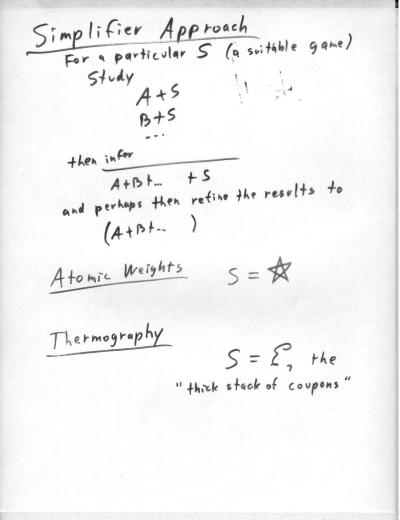 Simplifier Approach
For a particular S (a suitable game)
Study
A + S
B + S
...
then infer
A+B+... + S
and perhaps then refine the results to
(A+B+... )
Atomic Weights S = ☆
Thermography
S = ℰ, the
"thick stack of coupons"